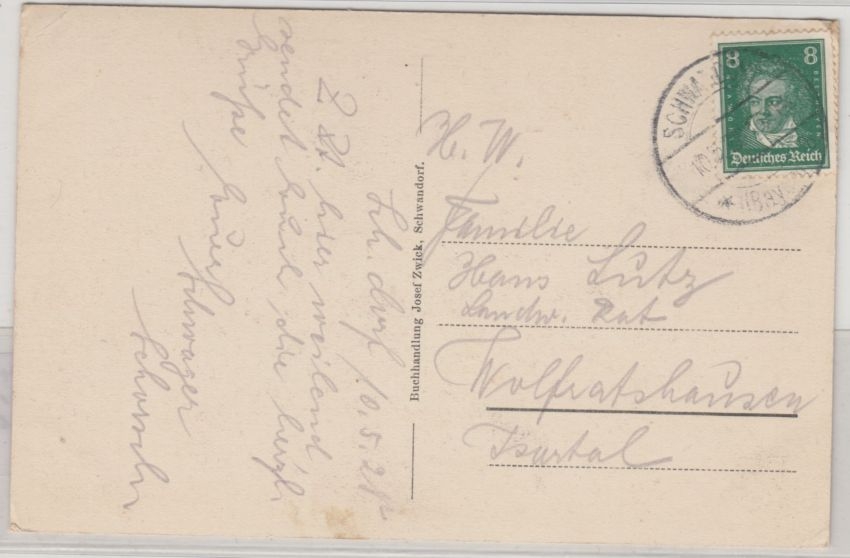 Schdorf 10.5.28
Z. Zt. hier weilend
sendet Euch die herzl.
Grüße Euer
Schwager
Buchhandlung Josef Zwick, Schwandorf.
8 8
L. V. VAN BEETHOVEN
Deutsches Reich
SCHWAND
10.5
(BAY
H. W.
Familie
Hans Lutz
Landw. Rat
Wolfratshausen
Isartal